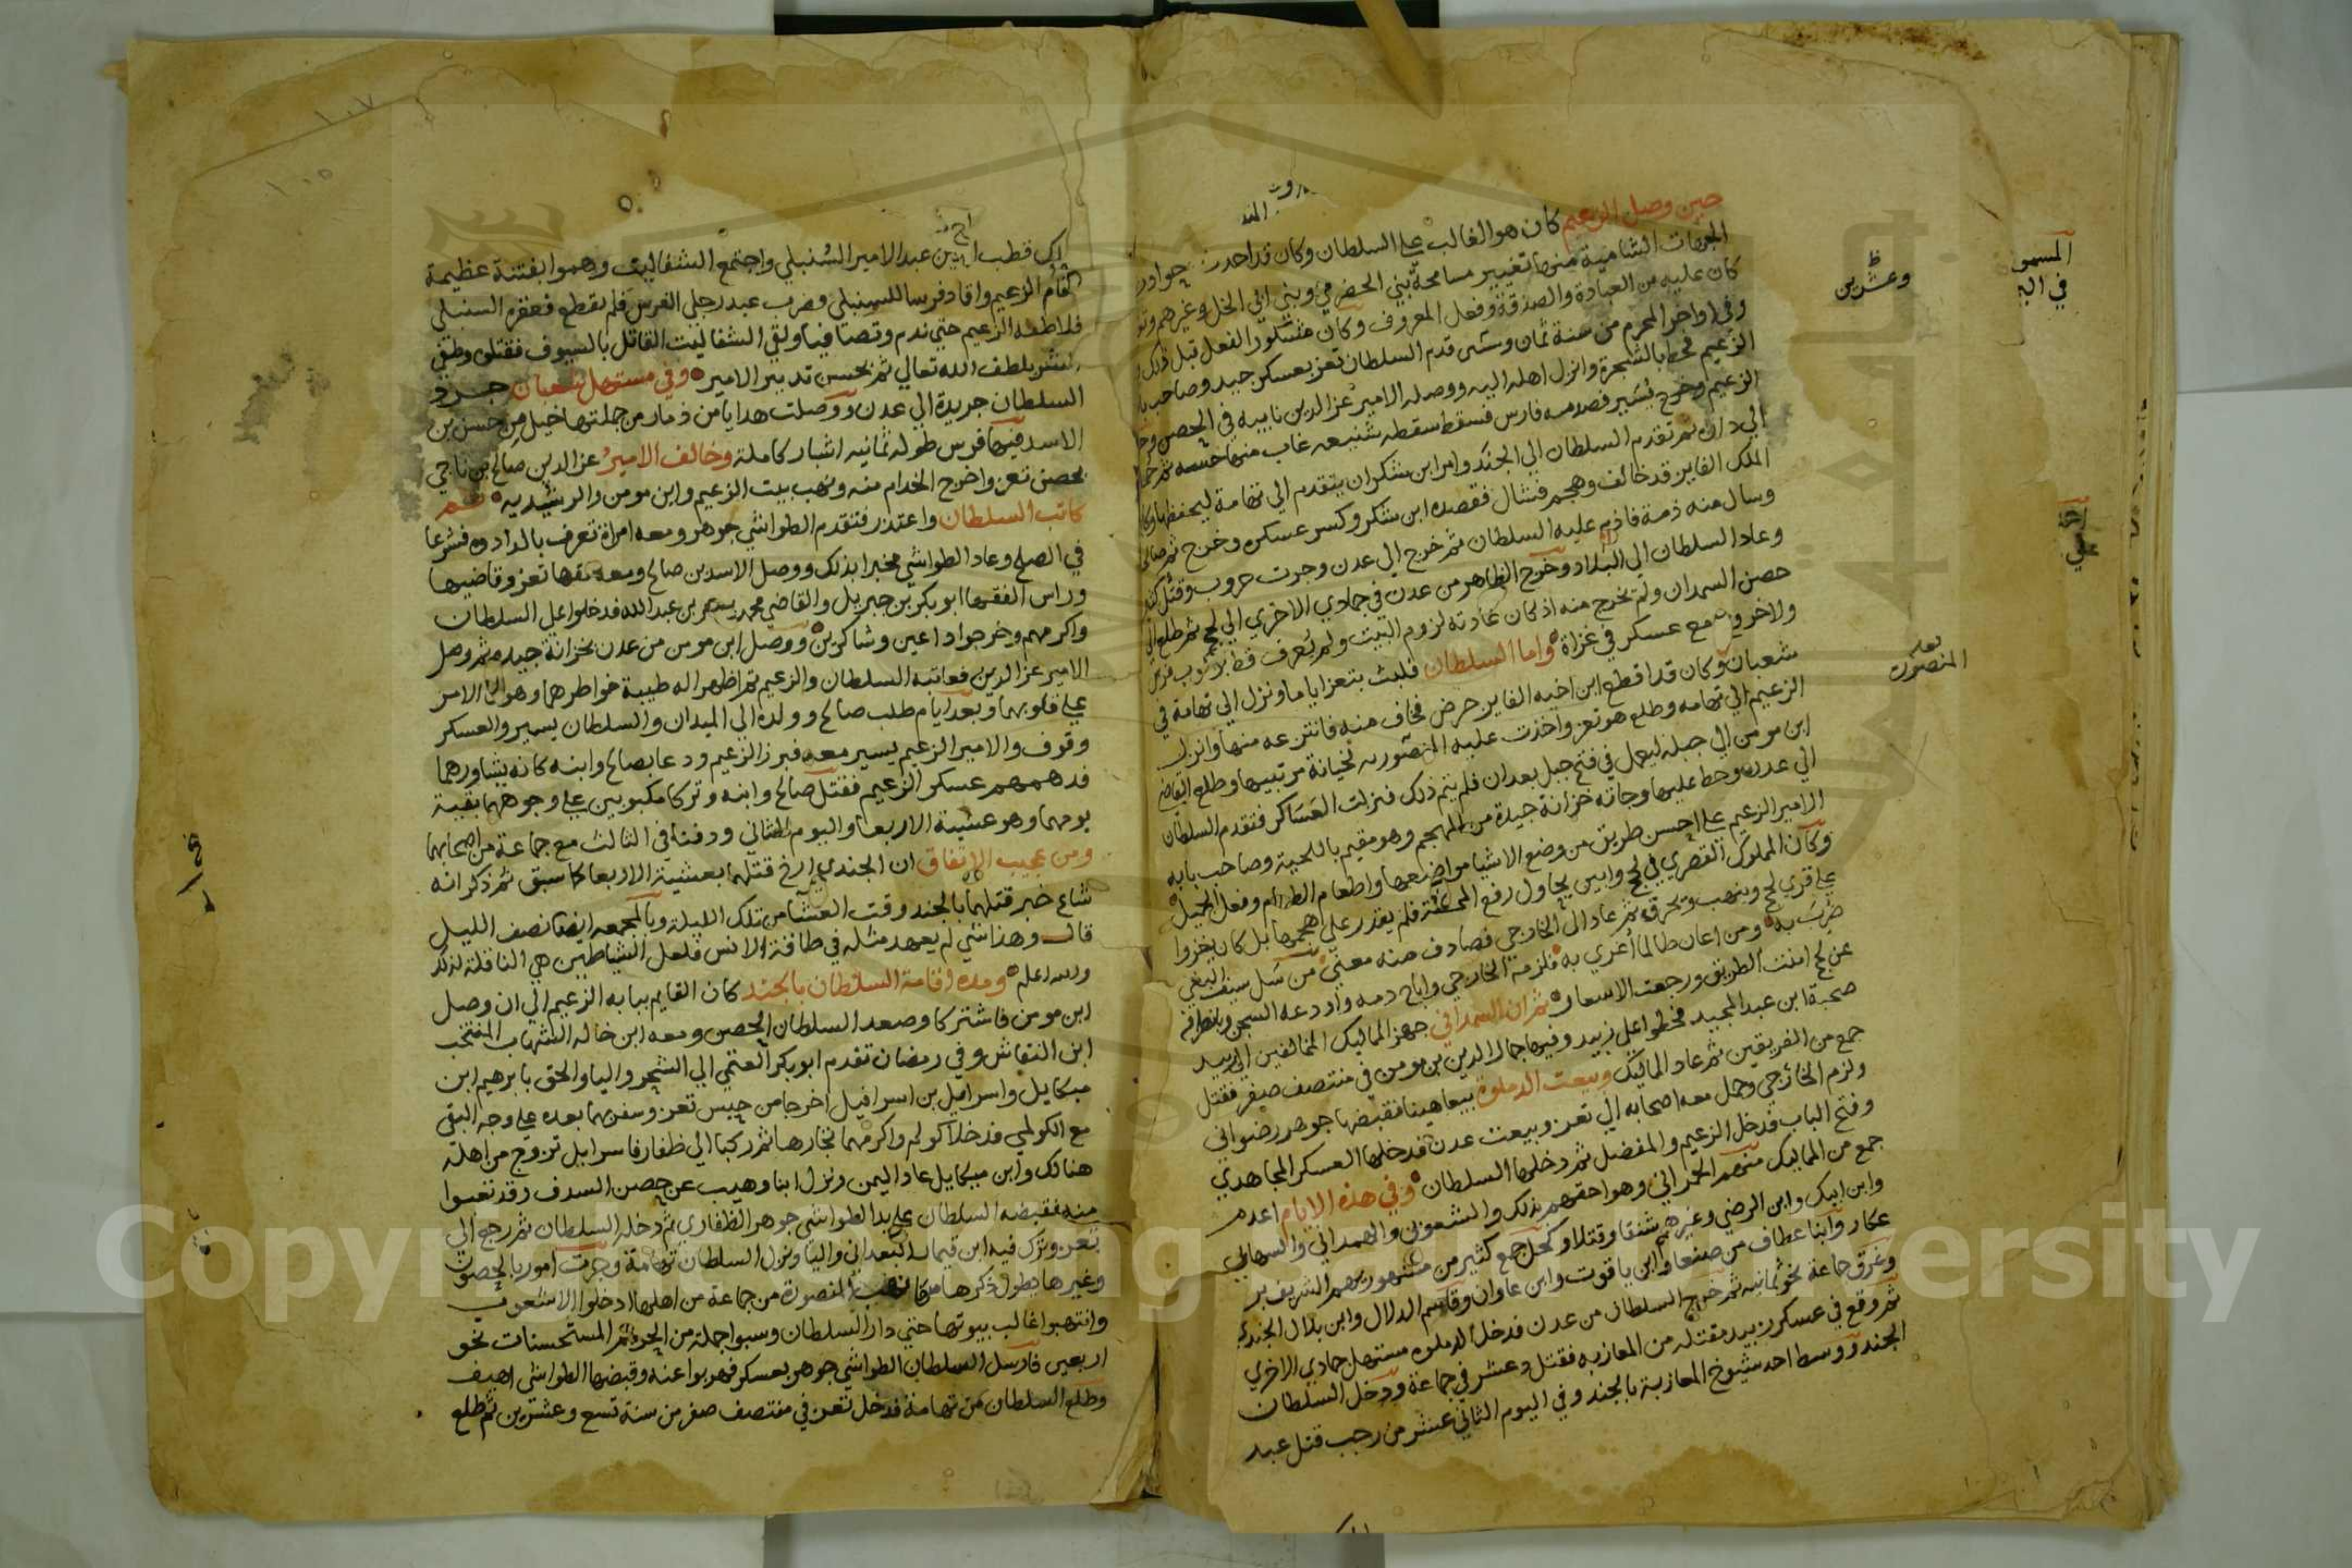 حين وصل الزعيم كان هو الغالب على السلطان وكان قد احدث
الجهات الشامية منها تغيير مسامحة بني الحضرمي وبني ابي الخل وغيرهم
كان عليه من العبادة والصدقة وفعل المعروف وكان مشكور الفعل قبل ذلك
وفي اواخر المحرم من سنة ثمان وعشرين قدم السلطان تعز بعسكر جيد وصاحب
الزعيم فحط بالشجرة وانزل اهله اليه ووصله الامير عز الدين نايبه في الحصن
الزعيم وخرج يسير فصدمه فارس فسقط سقطه شنيعه غاب منها حسه ثم
الي داره ثم تقدم السلطان الي الجند وامر ابن شكر ان يتقدم الي تهامة ليحفظها
الملك الفايز قد خالف وهجم فشال فقصده ابن شكر وكسر عسكره وخرج
وسال منه ذمة فاذم عليه السلطان ثم خرج الي عدن وجرت حروب وقتل
وعاد السلطان الي البلاد وخرج الظاهر من عدن في جمادي الاخري الي لحج ثم طلع الي
حصن السمدان ولم يخرج منه اذ كان عادته لزوم البيت ولم يعرف قط بركوب فرس
ولا خروج مع عسكر في غزاة واما السلطان فلبث بتعز اياما ونزل الي تهامة في
شعبان وكان قد اقطع ابن اخيه الفايز حرض فخاف منه فانتزعه منها وانزل
الزعيم الي تهامه وطلع هو تعز واخذت عليه المنصوره بخيانة مرتبيها وطلع القاضي
ابن مومن الي جبله ليعمل في فتح جبل بعدان فلم يتم ذلك فنزلت العساكر فتقدم السلطان
الي عدن وحط عليها وجاته خزانة جيدة من المهجم وهو مقيم باللخبة وصاحب بابه
الامير الزعيم علي احسن طريق من وضع الاشيا مواضعها واطعام الطعام وفعل الجميل
وكان المملوك القصري في لحج وابين يحاول رفع المحطة فلم يقدر علي هجمها بل كان يغزوا
علي قري لحج وينهب ويحرق ثم عاد الي الخارجي فصادف منه معني من سل سيف البغي
ضرب به ومن اعان ظالما اغري به فلزمه الخارجي واباح دمه واودعه السجن
عن لحج امنت الطريق ورجعت الاسعار ثم ان الهمداني جهز المماليك المخالفين الي زبيد
صحبة ابن عبد المجيد فحطوا علي زبيد وفيها جمال الدين بن مومن في منتصف صفر فقتل
جمع من الفريقين ثم عاد المماليك وبيعت الدملوة بيعا هينا فقبضها جوهر رضواني
ولزم الخارجي وحمل معه اصحابه الي تعز وبيعت عدن فدخلها العسكر المجاهدي
وفتح الباب فدخل الزعيم والمفضل ثم دخلها السلطان وفي هذه الايام اعدم
جمع من المماليك منهم الحمراني وهو احقهم بذلك والشعون والهمداني والسهابي
وابن ايبك وابن الرضي وغيرهم شنقا وقتلا وكحل جمع كثير من مشهوريهم الشريف بر
عكار وابنا عطاف من صنعا وابن ياقوت وابن عاوان وقاسم الدلال وابن بلال الجندي
وغرق جماعة نحو ثمانيه ثم خرج السلطان من عدن فدخل الدملوه مستهل جمادي الاخري
ثم وقع في عسكر زبيد مقتله من المعازبه فقتل وعشر في جماعة ودخل السلطان
الجند ووسط احد شيوخ المعازبة بالجند وفي اليوم الثاني عشر من رجب قتل عبد
وعشرين
المنصورة
المسمى
في
قطب الدين عبد الامير السنبلي واجتمع الشفاليت وهموا بفتنة عظيمة
فقام الزعيم واقاد فرسا للسنبلي وضرب عبد رجلي الفرس فلم يقطع فعقره السنبلي
فلاطفه الزعيم حتي ندم وتصافيا ولقي الشفاليت القاتل بالسيوف فقتلوه وطفي
الشر بلطف الله تعالي ثم بحسن تدبير الامير وفي مستهل شعبان جرد
السلطان جريدة الي عدن ووصلت هدايا من ذمار من جملتها خيل من حسن بن
الاسد فيها فرس طوله ثمانيه اشبار كاملة وخالف الامير عز الدين صالح بن ناجي
بحصن تعز واخرج الخدام منه ونهب بيت الزعيم وابن مومن والرشيديه ثم
كاتب السلطان واعتذر فتقدم الطواشي جوهر ومعه امراة تعرف بالدادوه فشرعا
في الصلح وعاد الطواشي مخبرا بذلك ووصل الاسد بن صالح ومعه فقها تعز وقاضيها
وراس الفقها ابو بكر بن جبريل والقاضي محمد بن عبد الله فدخلوا علي السلطان
واكرمهم وخرجوا داعين وشاكرين ووصل ابن مومن من عدن بخزانة جيده ثم وصل
الامير عز الدين فعاتبه السلطان والزعيم ثم اظهرا له طيبة خواطرهما وهو الامر
علي قلوبهما وبعد ايام طلب صالح وولده الي الميدان والسلطان يسير والعسكر
وقوف والامير الزعيم يسير معه فبرز الزعيم ودعا بصالح وابنه كانه يشاورهما
فدهمهم عسكر الزعيم فقتل صالح وابنه وتركا مكبوبين علي وجوههما بقية
يومهما وهو عشية الاربعا واليوم الثاني ودفنا في الثالث مع جماعة من اصحابهما
ومن عجيب الاتفاق ان الجندي ارخ قتلهما بعشية الاربعا كما سبق ثم ذكر انه
شاع خبر قتلهما بالجند وقت العشا من تلك الليلة وبالمهجم ايضا نصف الليل
قال وهذا شي لم يعهد مثله في طاقة الانس فلعل الشياطين هي الناقلة لذلك
والله اعلم ومده اقامة السلطان بالجند كان القايم ببابه الزعيم الي ان وصل
ابن مومن فاشتركا وصعد السلطان الحصن ومعه ابن خاله الشهاب المنتخب
ابن النقاش وفي رمضان تقدم ابو بكر العتمي الي الشحر واليا والحق بابرهيم ابن
ميكايل واسرافيل بن اسرافيل اخرجا من حبس تعز وسفرهما بعده علي وجه البقي
مع الكولمي فدخلا كولم واكرمهما تجارها ثم ركبا الي ظفار فاسرايل تزوج من اهله
هنالك وابن ميكايل عاد اليمن ونزل ابنا وهيب عن حصن السدف وقد تغيبوا
منه فقبضه السلطان علي يد الطواشي جوهر الظفاري ثم دخله السلطان ثم رجع الي
تعز وترك فيه ابن قيماز البعداني واليا ونزل السلطان تهامة وجرت امور بالحصون
وغيرها يطول ذكرها المنصورة من جماعة من اهلها ادخلوا الاشعوب
وانتهبوا اغالب بيوتها حتي دار السلطان وسبوا جملة من المستحسنات نحو
اربعين فارسل السلطان الطواشي جوهر بعسكر فهربوا عنه وقبضها الطواشي اهيف
وطلع السلطان من تهامة فدخل تعز في منتصف صفر من سنة تسع وعشرين ثم طلع
١٠٧
١٠٥
Copyright © King Saud University